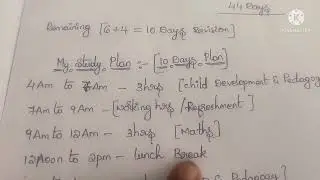 44 Days
Remaining [6+4 = 10 Days Revision]
My Study Plan :- [10 Days Plan]
4Am to 7Am - 3hrs [child Development & Pedagogy
7Am to 9Am - [working hrs / Refreshment]
9Am to 12Am - 3hrs [Maths]
12Noon to 2pm - lunch Break
& Pedagogy